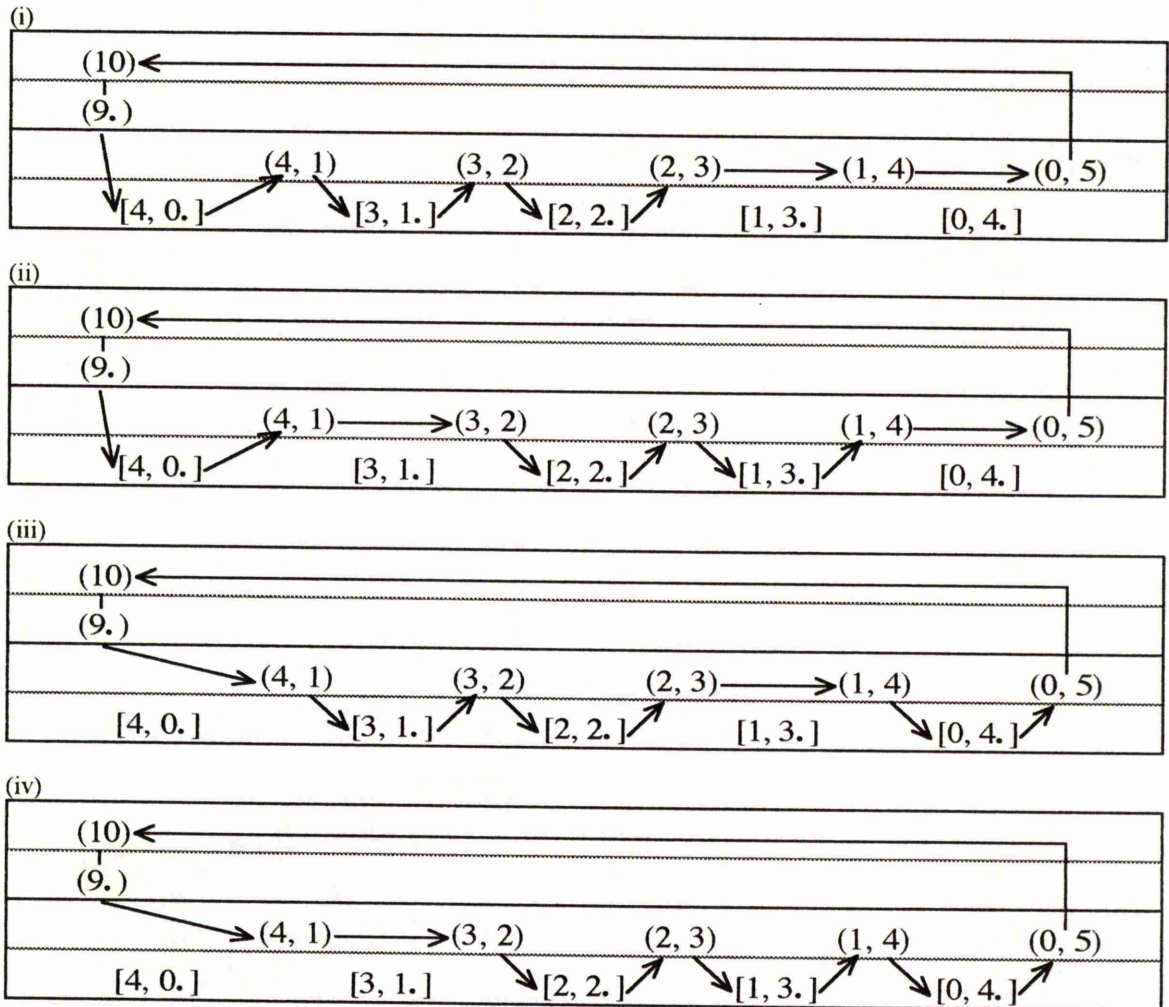 (i)
(10)
(9.)
(4, 1) (3, 2) (2, 3) (1, 4) (0, 5)
[4, 0.] [3, 1.] [2, 2.] [1, 3.] [0, 4.]
(ii)
(10)
(9.)
(4, 1) (3, 2) (2, 3) (1, 4) (0, 5)
[4, 0.] [3, 1.] [2, 2.] [1, 3.] [0, 4.]
(iii)
(10)
(9.)
(4, 1) (3, 2) (2, 3) (1, 4) (0, 5)
[4, 0.] [3, 1.] [2, 2.] [1, 3.] [0, 4.]
(iv)
(10)
(9.)
(4, 1) (3, 2) (2, 3) (1, 4) (0, 5)
[4, 0.] [3, 1.] [2, 2.] [1, 3.] [0, 4.]